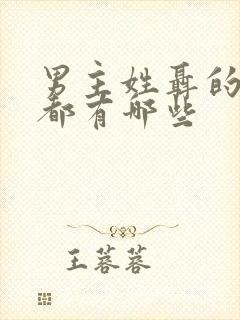 男主姓聶的
都有哪些
王蓉蓉